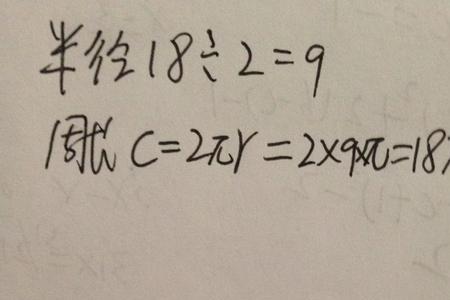 半径18÷2=9
周长 C=2πr=2×9×π=18